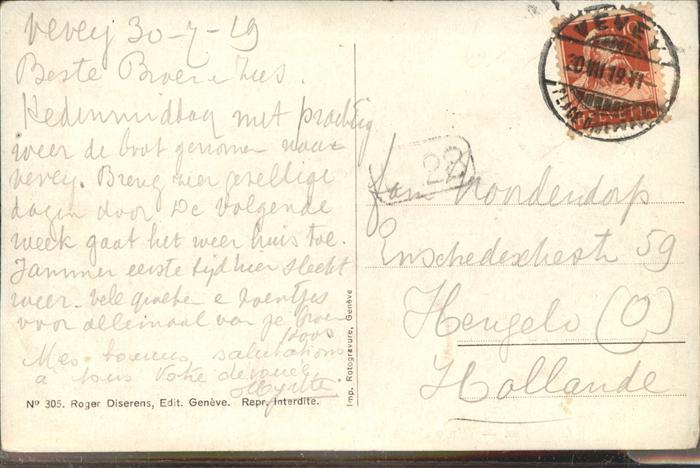 Vevey 30-7-19
Beste Broer e Zus.
Hedenmiddag met prachtig
weer de boot genomen naar
Vevey. Breng hier gezellige
dagen door De volgende
week gaat het weer huis toe.
Jammer eerste tijd hier slecht
weer. vele groeten e zoentjes
voor allemaal van je broer
Koos
Mes bonnes salutations
a tous Votre devouée
No 305. Roger Diserens, Edit. Genève. Repr. Interdite.
Imp. Rotogravure, Genève
VEVEY
30 VII 19
HELVETIA
22
Fam Noordendorp
Enschedeschestr 59
Hengelo (O)
Hollande